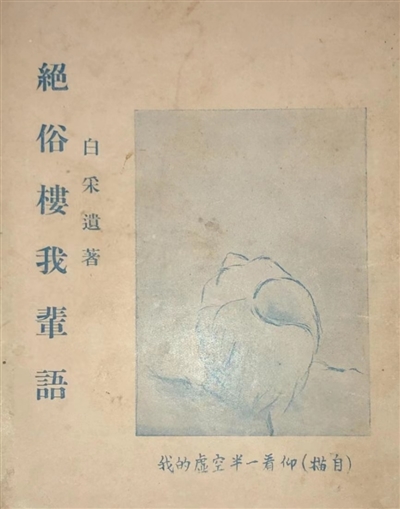 絕俗樓我輩語
白采遺著
(自描)仰看一半空虛的我